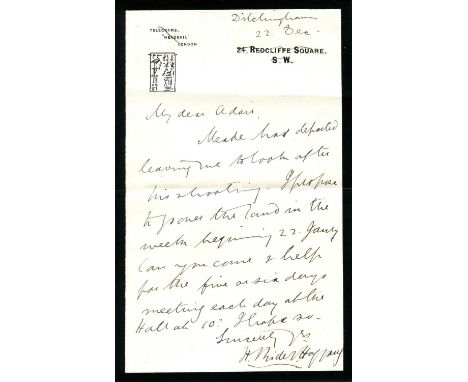 Ditchingham
22 Dec.
TELEGRAMS,
LONDON
24, REDCLIFFE SQUARE,
S.W.
My dear Adair,
Meade has departed
leaving me to look after
his shooting - I propose
to the land in the
week beginning 22. Jany
Can you come & help
for the five or six days
meeting each day at the
Hall at 10? I hope so -
Sincerely Yrs
H Rider Haggard